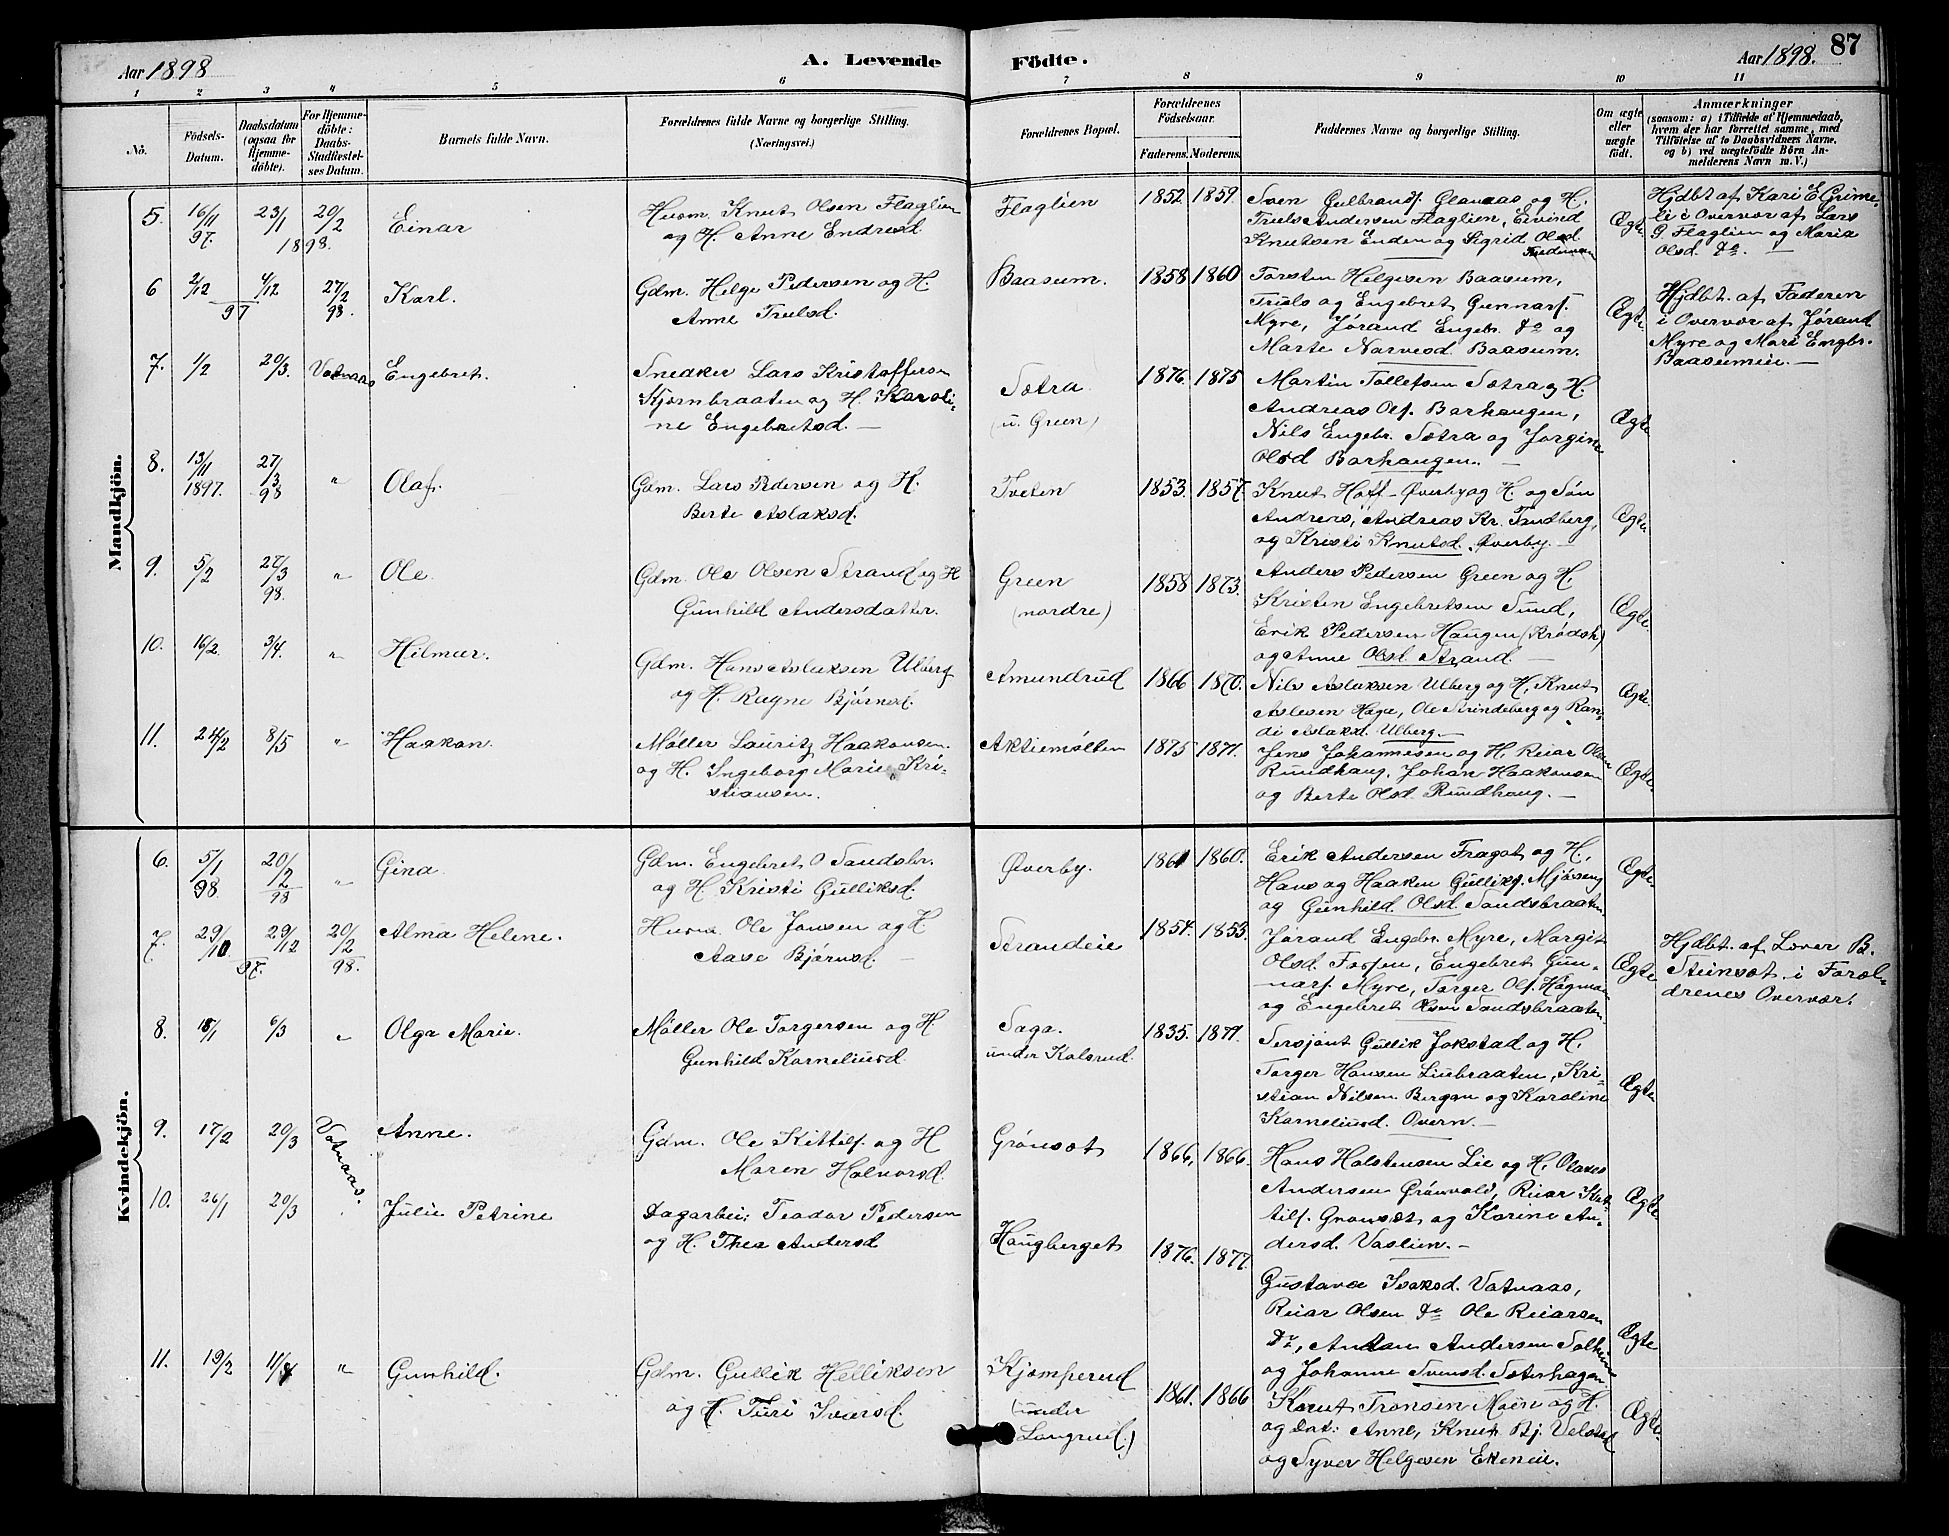 Aar 1898
A. Levende
Födte.
Aar 1898.
87
1 2 3 4 5 6 7 8 9 10 11
No.
Födsels-
Datum.
Daabsdatum
(ogsaa for
Hjemme-
döbte).
For Hjemme-
döbte:
Daabs-
Stadfæstel-
ses Datum.
Barnets fulde Navn.
Forældrenes fulde Navne og borgerlige Stilling.
(Næringsvei.)
Forældrenes Bopæl.
Forældrenes
Födselsaar.
Faderens. Moderens.
Faddernes Navne og borgerlige Stilling.
Om ægte
eller
uægte
födt.
Anmærkninger
(saasom: a) i Tilfælde af Hjemmedaab,
hvem der har forrettet samme, med
Tilföielse af to Daabsvidners Navne,
og b) ved uægtefödte Börn An-
melderens Navn m. V.)
Mandkjön.
5. 16/11 97. 23/1 1898. 20/2 Einar
Husm. Knut Olsen Flaglien
og H. Anne Endresd.
Flaglien 1852 1859.
Sven Gulbrands. Glanaas og H.
Truls Andersen Flaglien, Eivind
Knutsen Enden og Sigrid Olsd.
Ægte
Hjdbt af Kari E. Grime-
li i Overvær af Lars
G. Flaglien og Maria
Olsd. do. —
6 2/12 4/12 97 27/2 98. Karl.
Gdm. Helge Pedersen og H.
Anne Trulsd.
Baasum. 1858 1860
Torsten Helgesen Baasum,
Truls og Engebret Gunnars.
Myre, Jørand Engebr. do og
Marte Narvesd. Baasum.
Ægte.
Hjdbt. af Faderen
i Overvær af Jørand
Myre og Mari Engbr.
Baasumeie. —
7. 1/2 20/3. Vatnaas Engebret.
Snedker Lars Kristoffersen
Kjørnbraaten og H. Karoli-
ne Engebretsd. —
Sætra
(u. Green)
1876. 1875
Martin Tollefsen Sætra og H.
Andreas Ols. Borhaugen,
Nils Engebr. Sætra og Jorgine
Olsd Borhaugen. —
Ægte
8. 13/11 1897. 27/3 98 " Olaf.
Gdm. Lars Pedersen og H.
Berte Aslaksd.
Tveten 1853. 1857.
Knut Hoff - Øverby og H. og Søn
Andreas, Andreas Kr. Tandberg,
og Kristi Knutsd. Øverby. —
Ægte.
9. 5/2 27/3 98. " Ole.
Gdm. Ole Olsen Strand og H
Gunhild Andersdatter.
Green
(nordre)
1858 1873.
Anders Pedersen Green og H.
Kristen Engebretsen Sund,
Erik Pedersen Haugen (Krødsh)
og Anne Olsd. Strand. —
Ægte.
10. 16/2. 3/4. " Hilmar.
Gdm. Hans Aslaksen Ulberg
og H. Ragne Bjørnsd.
Amundrud 1866 1870.
Nils Aslaksen Ulberg og H. Knut
Aslesen Haga, Ole Strindeberg og Ran-
di Aslaksd. Ulberg. —
Ægte.
11. 24/2 8/5 " Haakon.
Møller Lauritz Haakonsen.
og H. Ingeborg Marie Kri-
stiansen.
Aktiemøllen 1875 1871.
Jens Johannesen og H. Reiar Olsen
Rundhaug, Johan Haakonsen
og Berte Olsd. Rundhaug. —
Ægte.
Kvindekjön.
6. 5/1 98. 20/2 98 " Gina
Gdm. Engebret O Sandsbr.
og H. Kristi Gulliksd.
Øverby. 1861 1860.
Erik Andersen Fragot og H.
Hans og Haaken Gulliks. Mjøseng
og Gunhild Olsd. Sandsbraaten
Ægte.
7. 29/10 29/12 97. 20/2 98. Alma Helene.
Husm. Ole Jonsen og H
Aase Bjørnsd. —
Strandeie 1854. 1855.
Jørand Engebr. Myre, Margit
Olsd. Fossen, Engebret Gun-
nars. Myre, Torger Ols. Hagman
og Engebret Olsen Sandsbraaten.
Ægte
Hjdbt. af Lover B.
Steinsæt i Foræl-
drenes Overvær.
8. 18/1 6/3 " Olga Marie.
Møller Ole Torgersen og H.
Gunhild Korneliusd
Saga.
under Kolsrud.
1835. 1871.
Sersjant Gullik Jokstad og H.
Torger Hansen Liubraaten, Kri-
stian Nilsen Bergan og Karoline
Korneliusd. Overn. —
Ægte
9. 17/2 20/3 Vatnaas. Anne.
Gdm. Ole Kittils. og H
Maren Halvorsd.
Grønsæt 1866. 1866.
Hans Halstensen Lie og H. Olaves
Andersen Grønvold, Reiar Kit-
tils. Gronsæt og Karine An-
dersd. Vaslien. —
Ægte
10. 26/1 20/3 " Julie Petrine
Dagarbei: Teodor Pedersen
og H. Thea Andersd
Haugberget 1876. 1877.
Gustava Isaksd. Vatnaas,
Reiar Olsen do Ole Reiarsen
do, Anton Andersen Solheim
og Johanne Svensd. Sæterhagen
Ægte
11. 19/2 11/4 " Gunhild.
Gdm. Gullik Helliksen
og H. Turi Ivarsd.
Kjømperud
(under
Langrud.)
1861. 1866
Knut Tronsen Moen og H.
og Dat: Anne, Knut Bj. Velstad
og Syver Helgesen Ekeneie.
Ægte.